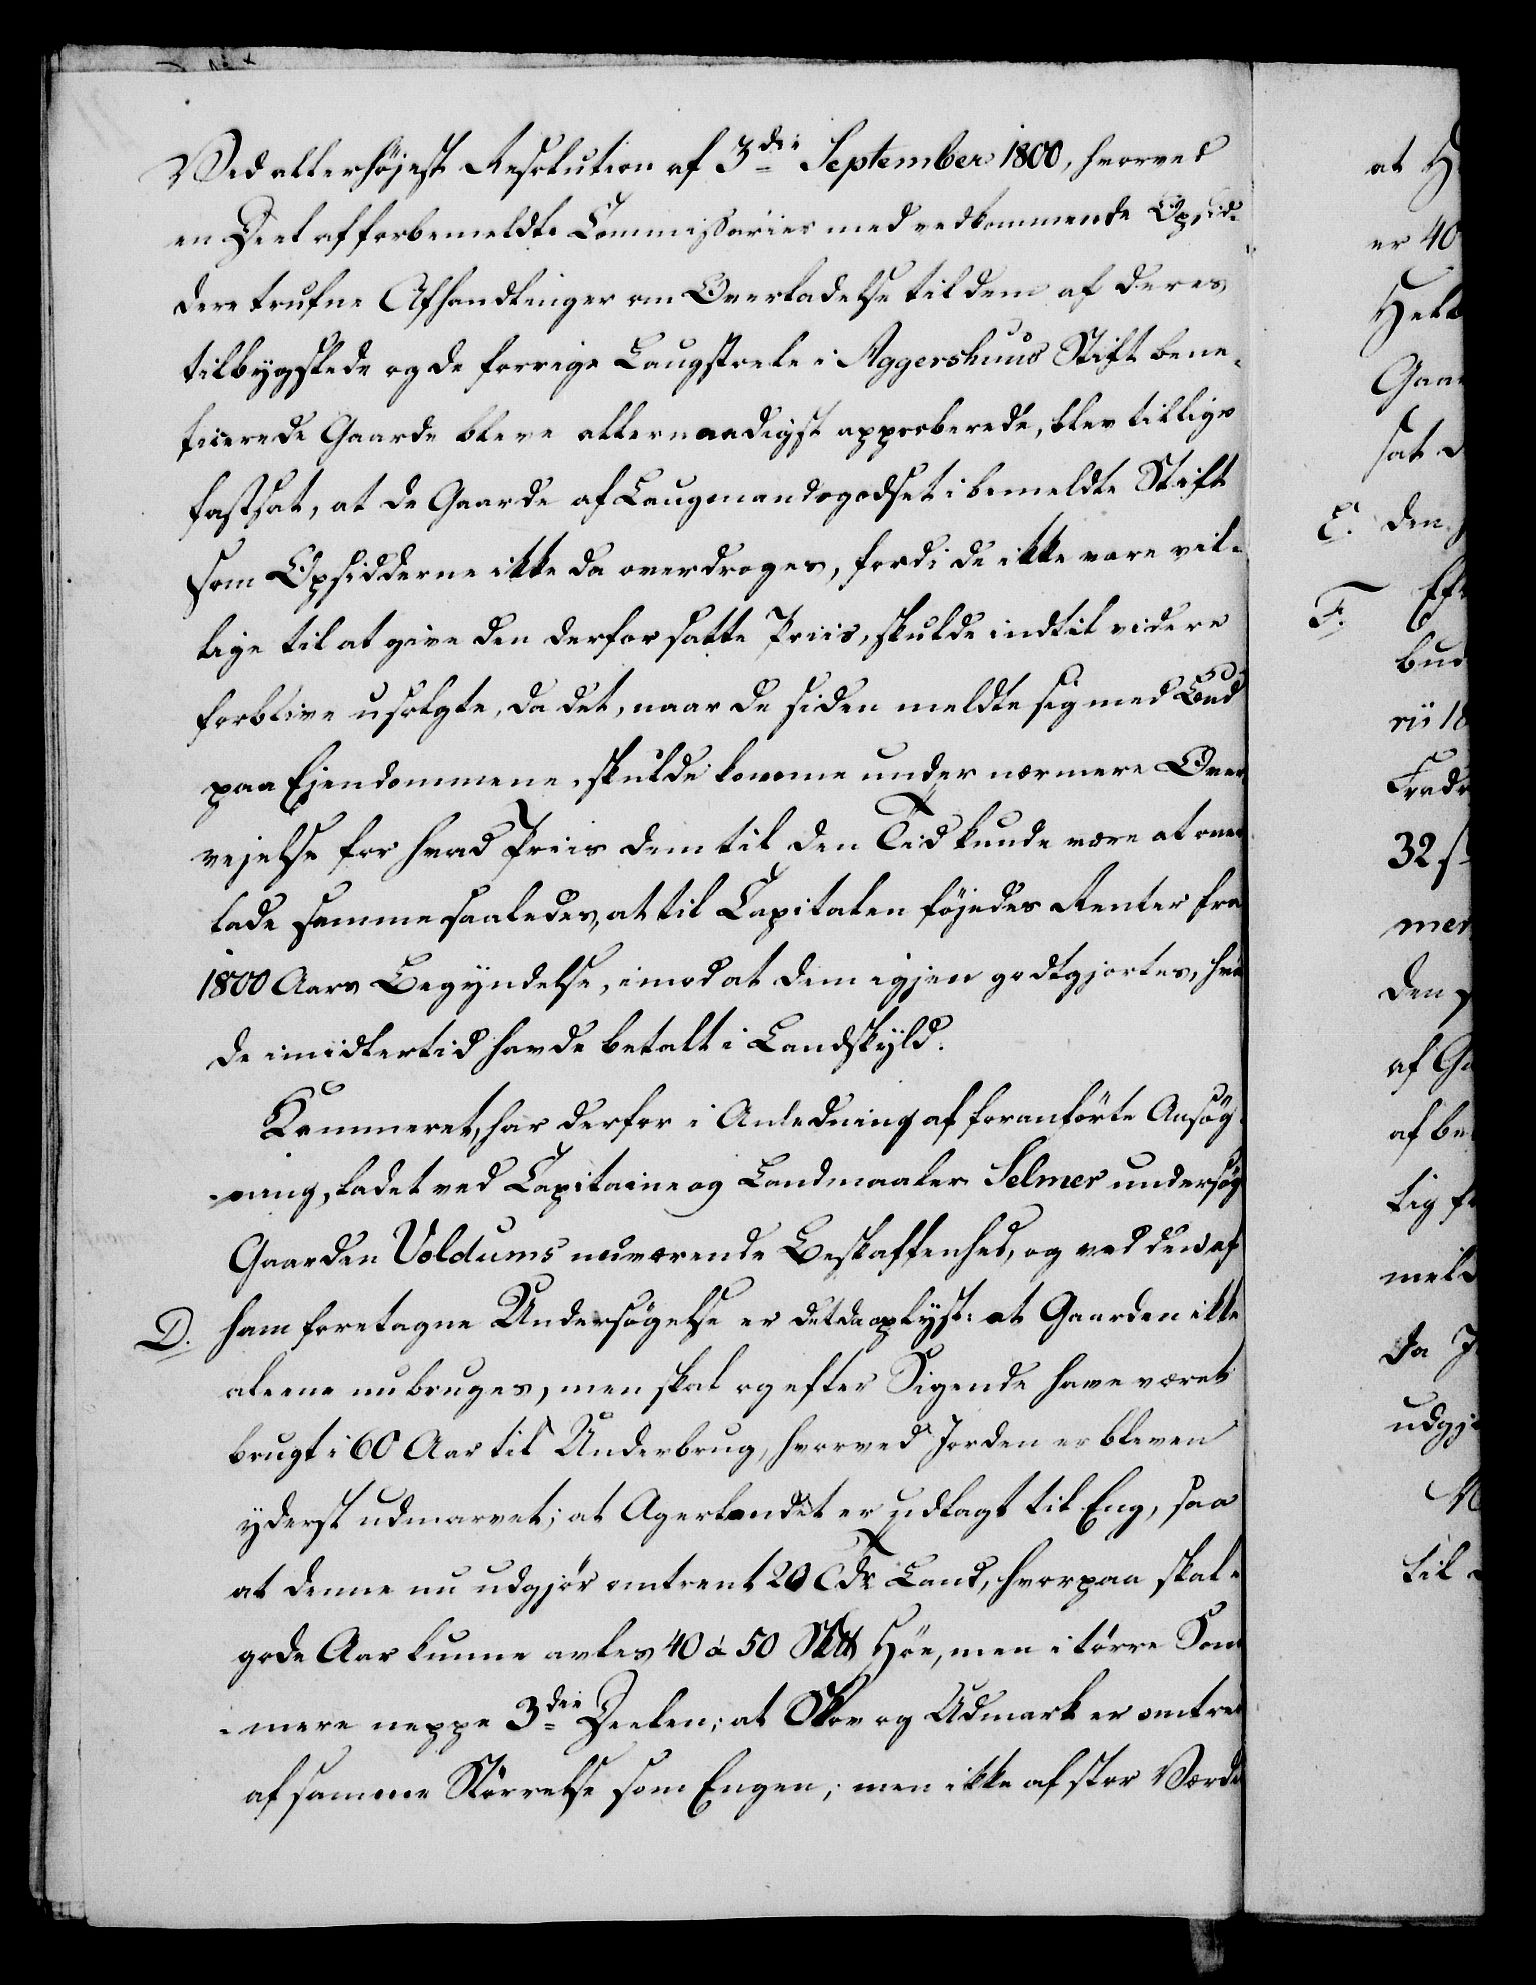 Ved allerhøjest Resolution af 3die September 1800, hvorved
en Deel af forbemeldte Commissarier med vedkommende Opsid-
dere trufne Afhandlinger om Overladelse til dem af deres
tilbygslede og de forrige Laugstole i Aggershuus Stift bene-
ficerede Gaarde bleve allernaadigst approberede, blev tillige
fastsat, at de Gaarde af Laugmandsgodset i bemeldte Stift
som Opsidderne ikke da overdroges, fordi de ikke vare vil-
lige til at give den derfor satte Priis, skulde indtil videre
forblive usolgte, da det, naar de siden meldte sig med Bud
paa Ejendommene, skulde komme under nærmere Over
vejelse for hvad Priis dem til den Tid kunde være at over
lade samme saaledes, at til Capitalen føjedes Renter fra
1800 Aars Begyndelse, imod at dem igjen godtgjortes, hva
de imidlertid havde betalt i Landskyld.
Kammeret, har derfor i Anledning af foranførte Ansøg-
ning, ladet ved Capitaine og Landmaaler Selmer undersøg
Gaarden Voldums nuværende Beskaffenhed, og ved den af
D. ham foretagne Undersøgelse er det da oplyst: at Gaarden ikke
aleene nu bruges, men skal og efter Sigende have været
brugt i 60 Aar til Underbrug, hvorved Jorden er bleven
yderst udmarvet; at Agerlandet er udlagt til Eng, saa
at denne nu udgjør omtrent 20 Tdr Land, hvorpaa skal i
gode Aar kunne avles 40 à 50 Høe, men i tørre Som
mere neppe 3die Deelen; at Skov og Udmark er omtren
af samme Størrelse som Engen; men ikke af stor Værdi
at H
er 40
Gaar
sat
E. den
F. Eft
bud
rii 18
32 s
mer
den
af Ga
af be
lig f
meld
da J
udgj
til